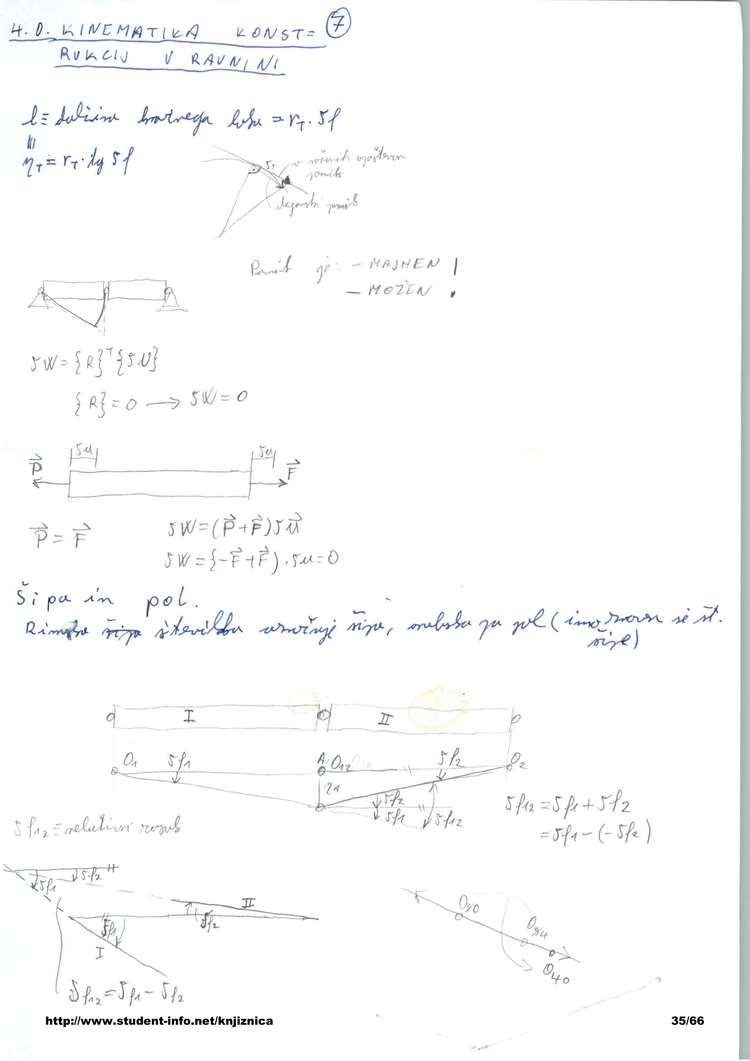 4.0. KINEMATIKA KONST= 7
RUKCIJ V RAVNINI
l ≡ dolžina krožnega loka = r_T · δφ
η_T ≐ r_T · tg δφ
δ_T
dejanski pomik
Pomik je: – MAJHEN !
– MOŽEN
δW = {R}^T {δU}
{R} = 0 → δW = 0
δu δu
P⃗ F⃗
P⃗ = F⃗
δW = (P⃗ + F⃗) δu⃗
δW = {-F⃗ + F⃗} · δu = 0
Šipa in pol.
Rimska številka označuje šipo, arabska pa pol (
šipe)
I II
O1 δφ1 A O12 δφ2 O2
η1 δφ2
δφ1 δφ12
δφ12 = δφ1 + δφ2
= δφ1 - (-δφ2)
δφ12 ≡ relativni zasuk
δφ1 δφ2
II
δφ1 δφ2
I
δφ12 = δφ1 - δφ2
O90
O94
O40
http://www.student-info.net/knjiznica 35/66